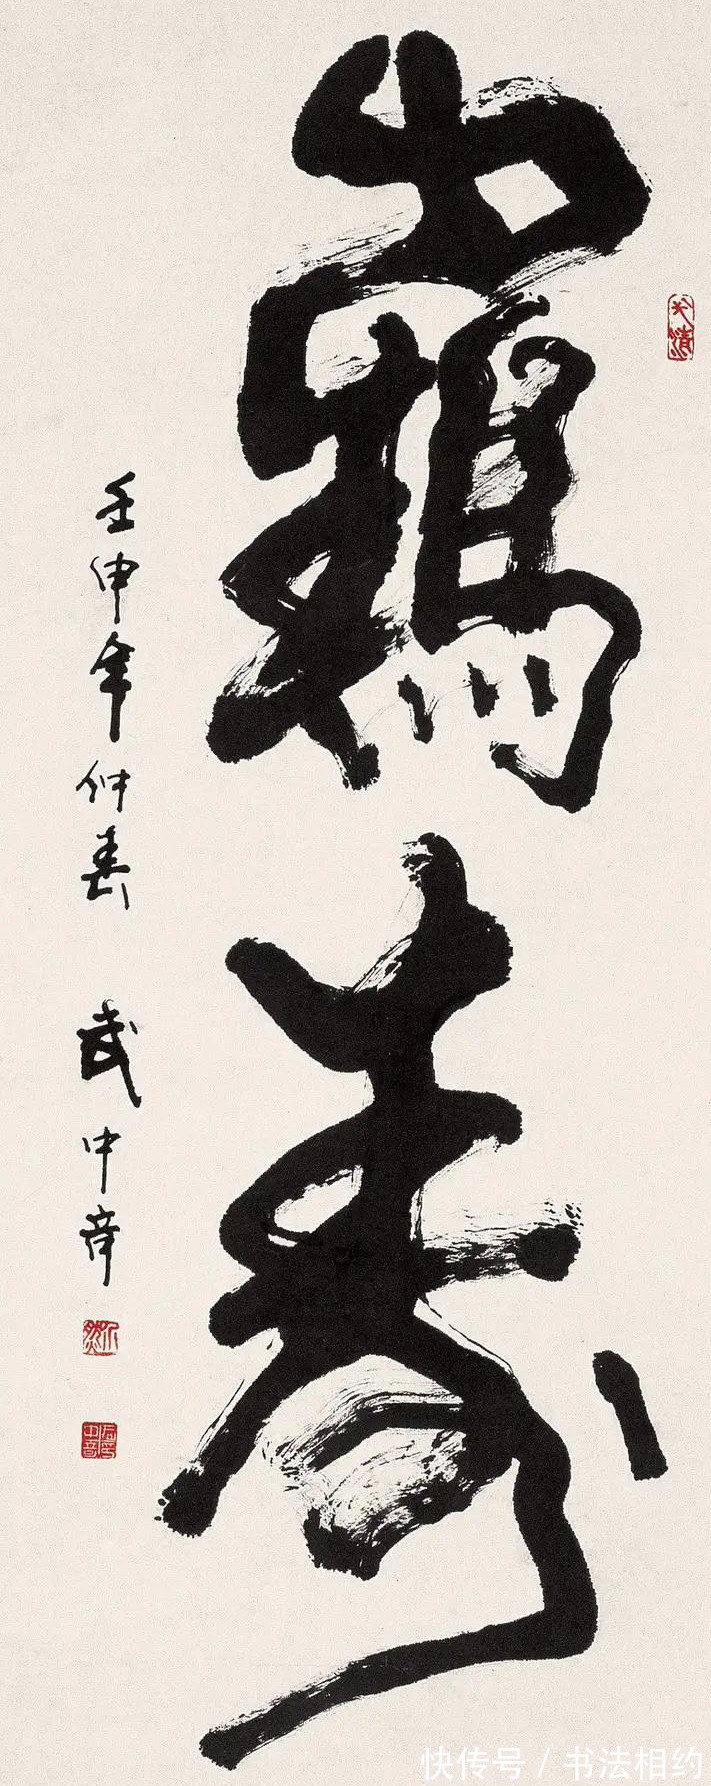 鶴壽
壬申年仲春 武中奇
快传号 / 书法相约